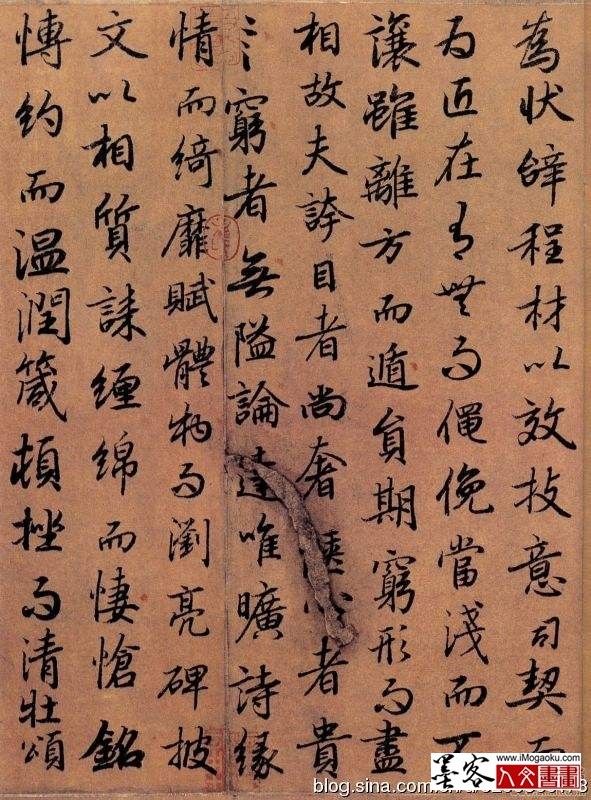 為狀辝程材以效技意司契而
為匠在有無而僶俛當淺而不
讓雖離方而遁員期窮形而盡
相故夫誇目者尚奢者貴
窮者無隘論達唯曠詩緣
情而綺靡賦體物而瀏亮碑披
文以相質誄纏綿而悽愴銘
博約而温潤箴頓挫而清壯頌
墨客
www.iMogaoku.com
人文書畫
blog.sina.com.cn